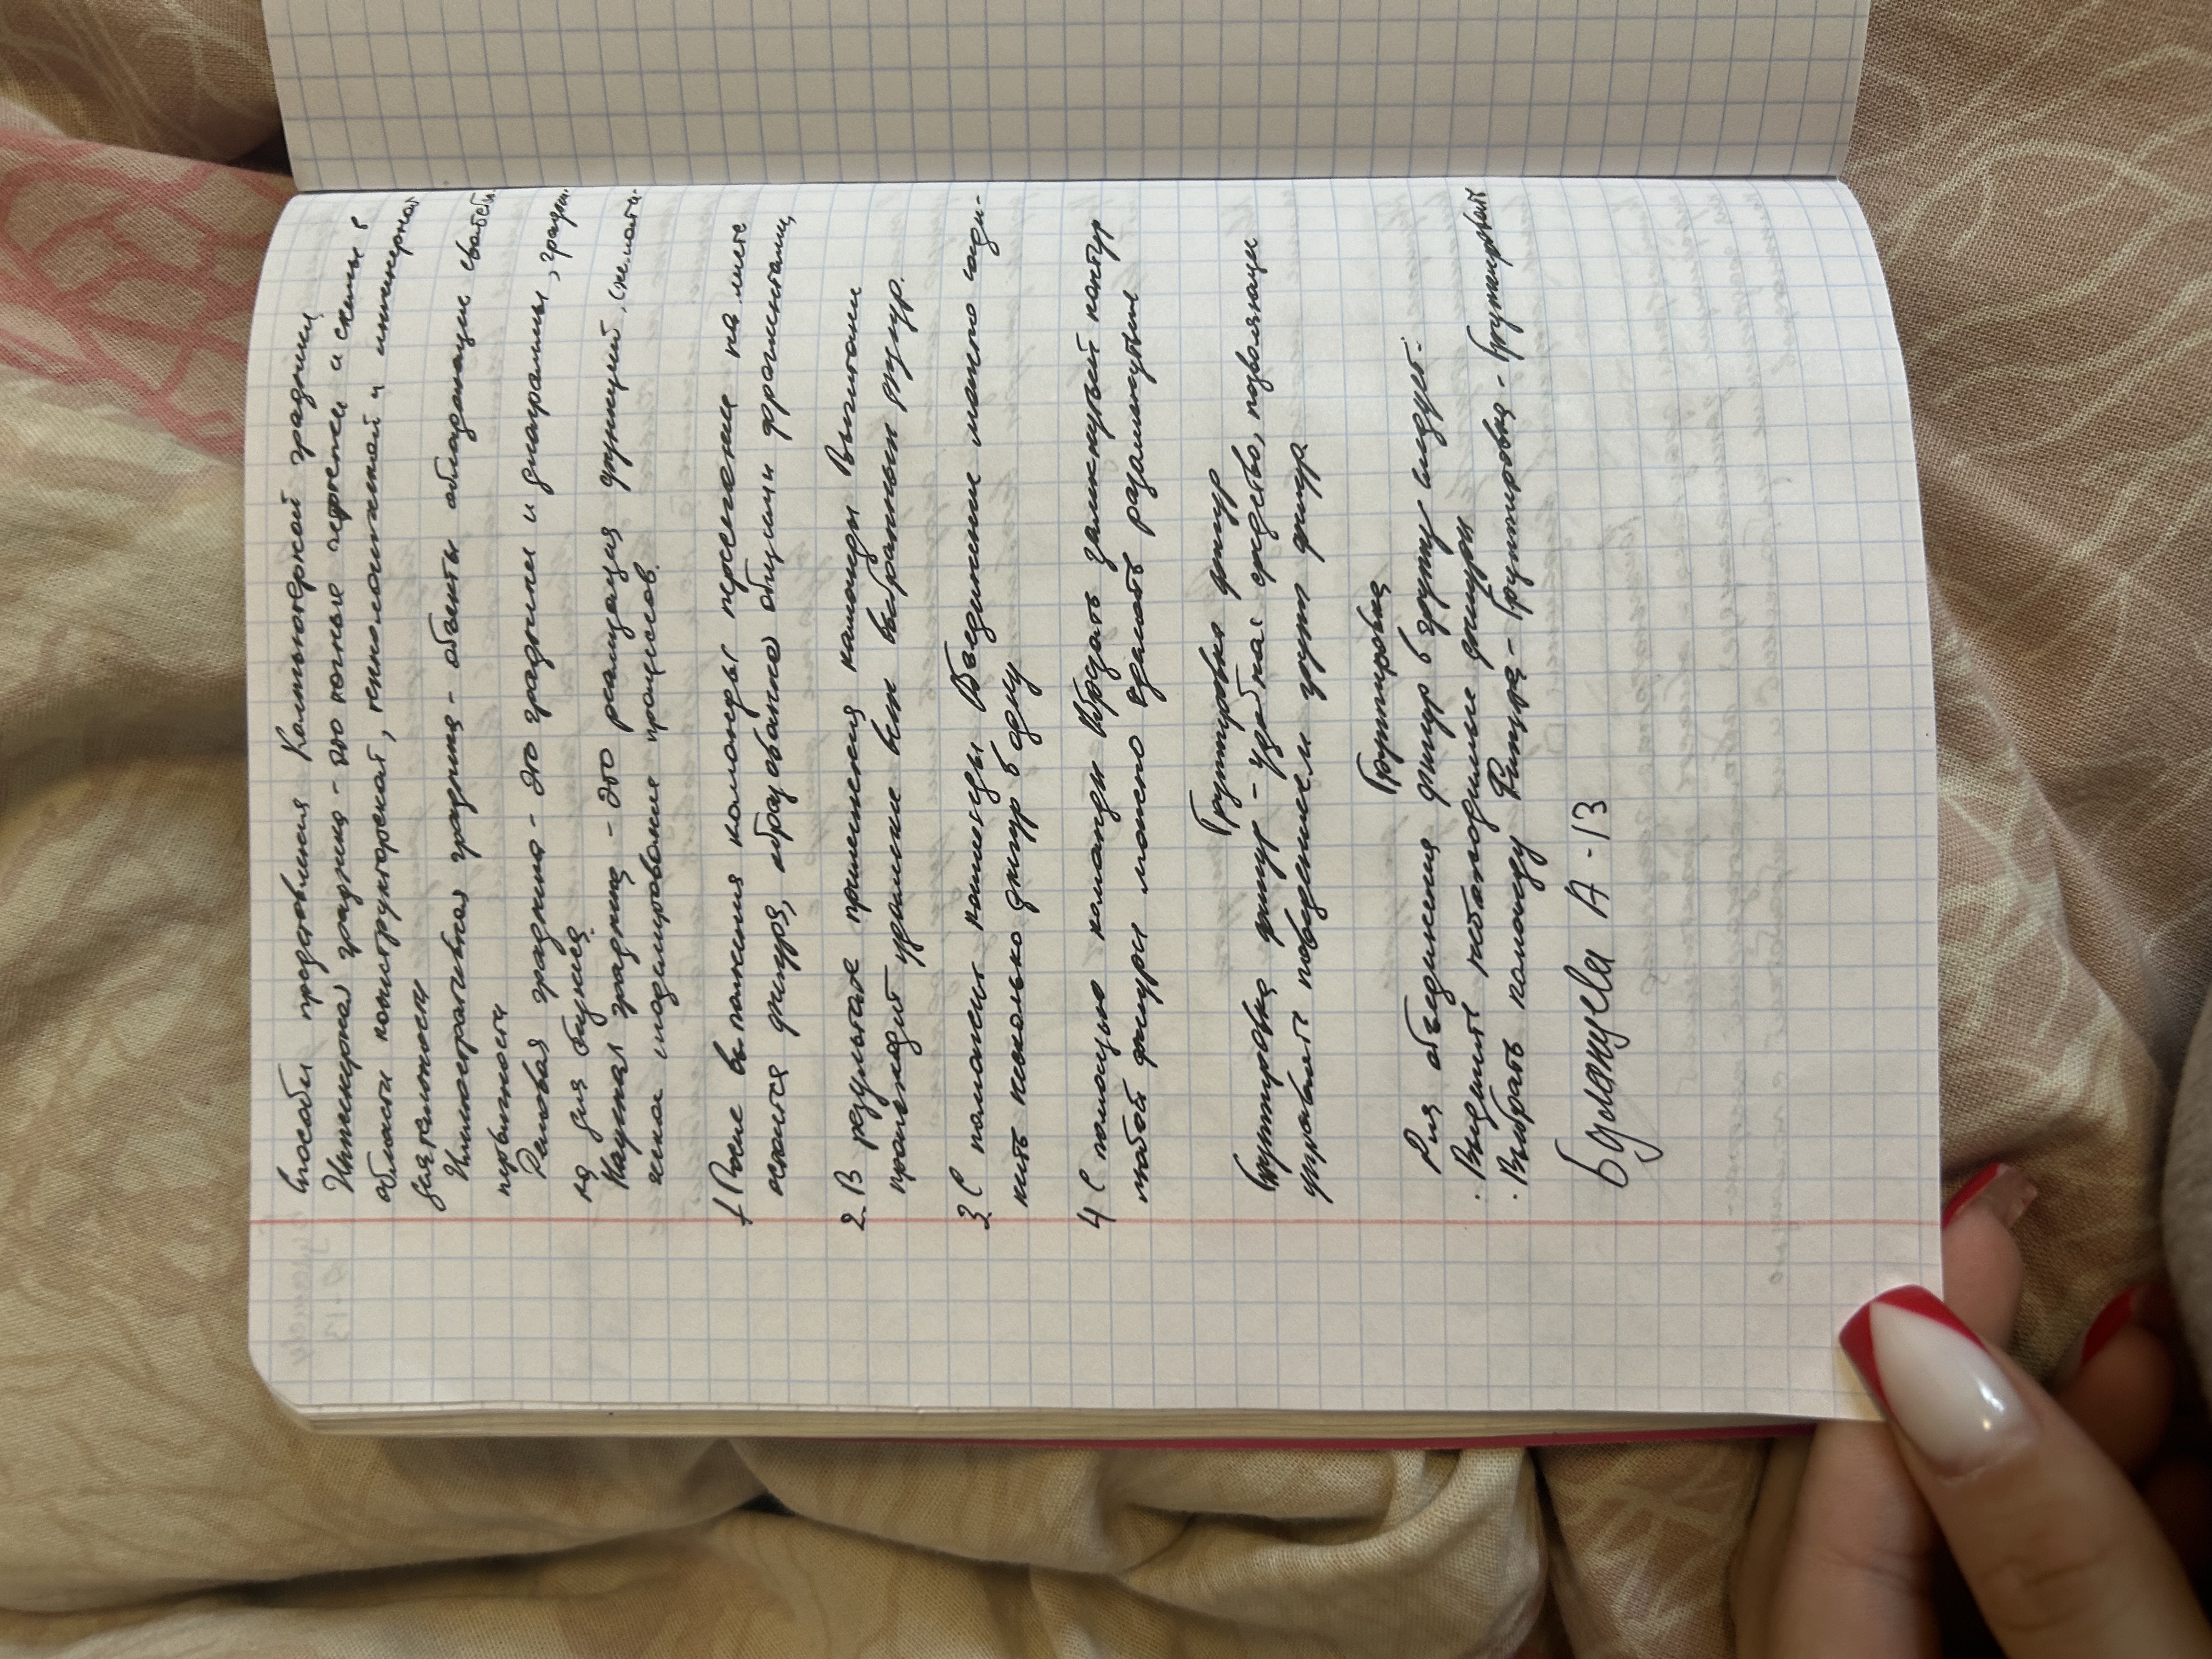 Способы представления Компьютерной графики
Инженерная графика - это точные чертежи и схемы в
области конструкторской, технологической и инженерной
деятельности
Иллюстративная графика - объекты обладающие свойств.
привычности
Деловая графика - это графики и диаграммы, график
ка для функций.
Научная графика - это реализация функций, схемати-
ческое моделирование процессов.
1 После выполнения команды пересечение на листе
остается фигура, образованная общими фрагментами,
2. В результате применения команды Вычитание
происходит удаление всех выбранных фигур.
3 С помощью команды Объединение можно соеди-
нить несколько фигур в одну
4 С помощью команды Обрезать замкнутый контур
любой фигуры можно сделать разомкнутым
Группировка фигур
Группировка фигур - удобное средство, позволяющее
управлять поведением групп фигур.
Группировка
Для объединения фигур в группу следует:
· Выделить необходимые фигуры
· Выбрать команду Фигура - Группировка - Группировать
Будмануева А -13